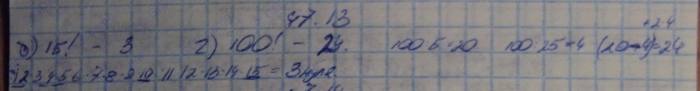 47.13
б) 15! - 3 г) 100! - 24. 100:5=20 100:25=4 (20+4)=24
1·2·3·4·5·6·7·8·9·10·11·12·13·14·15 = 3 нуля.